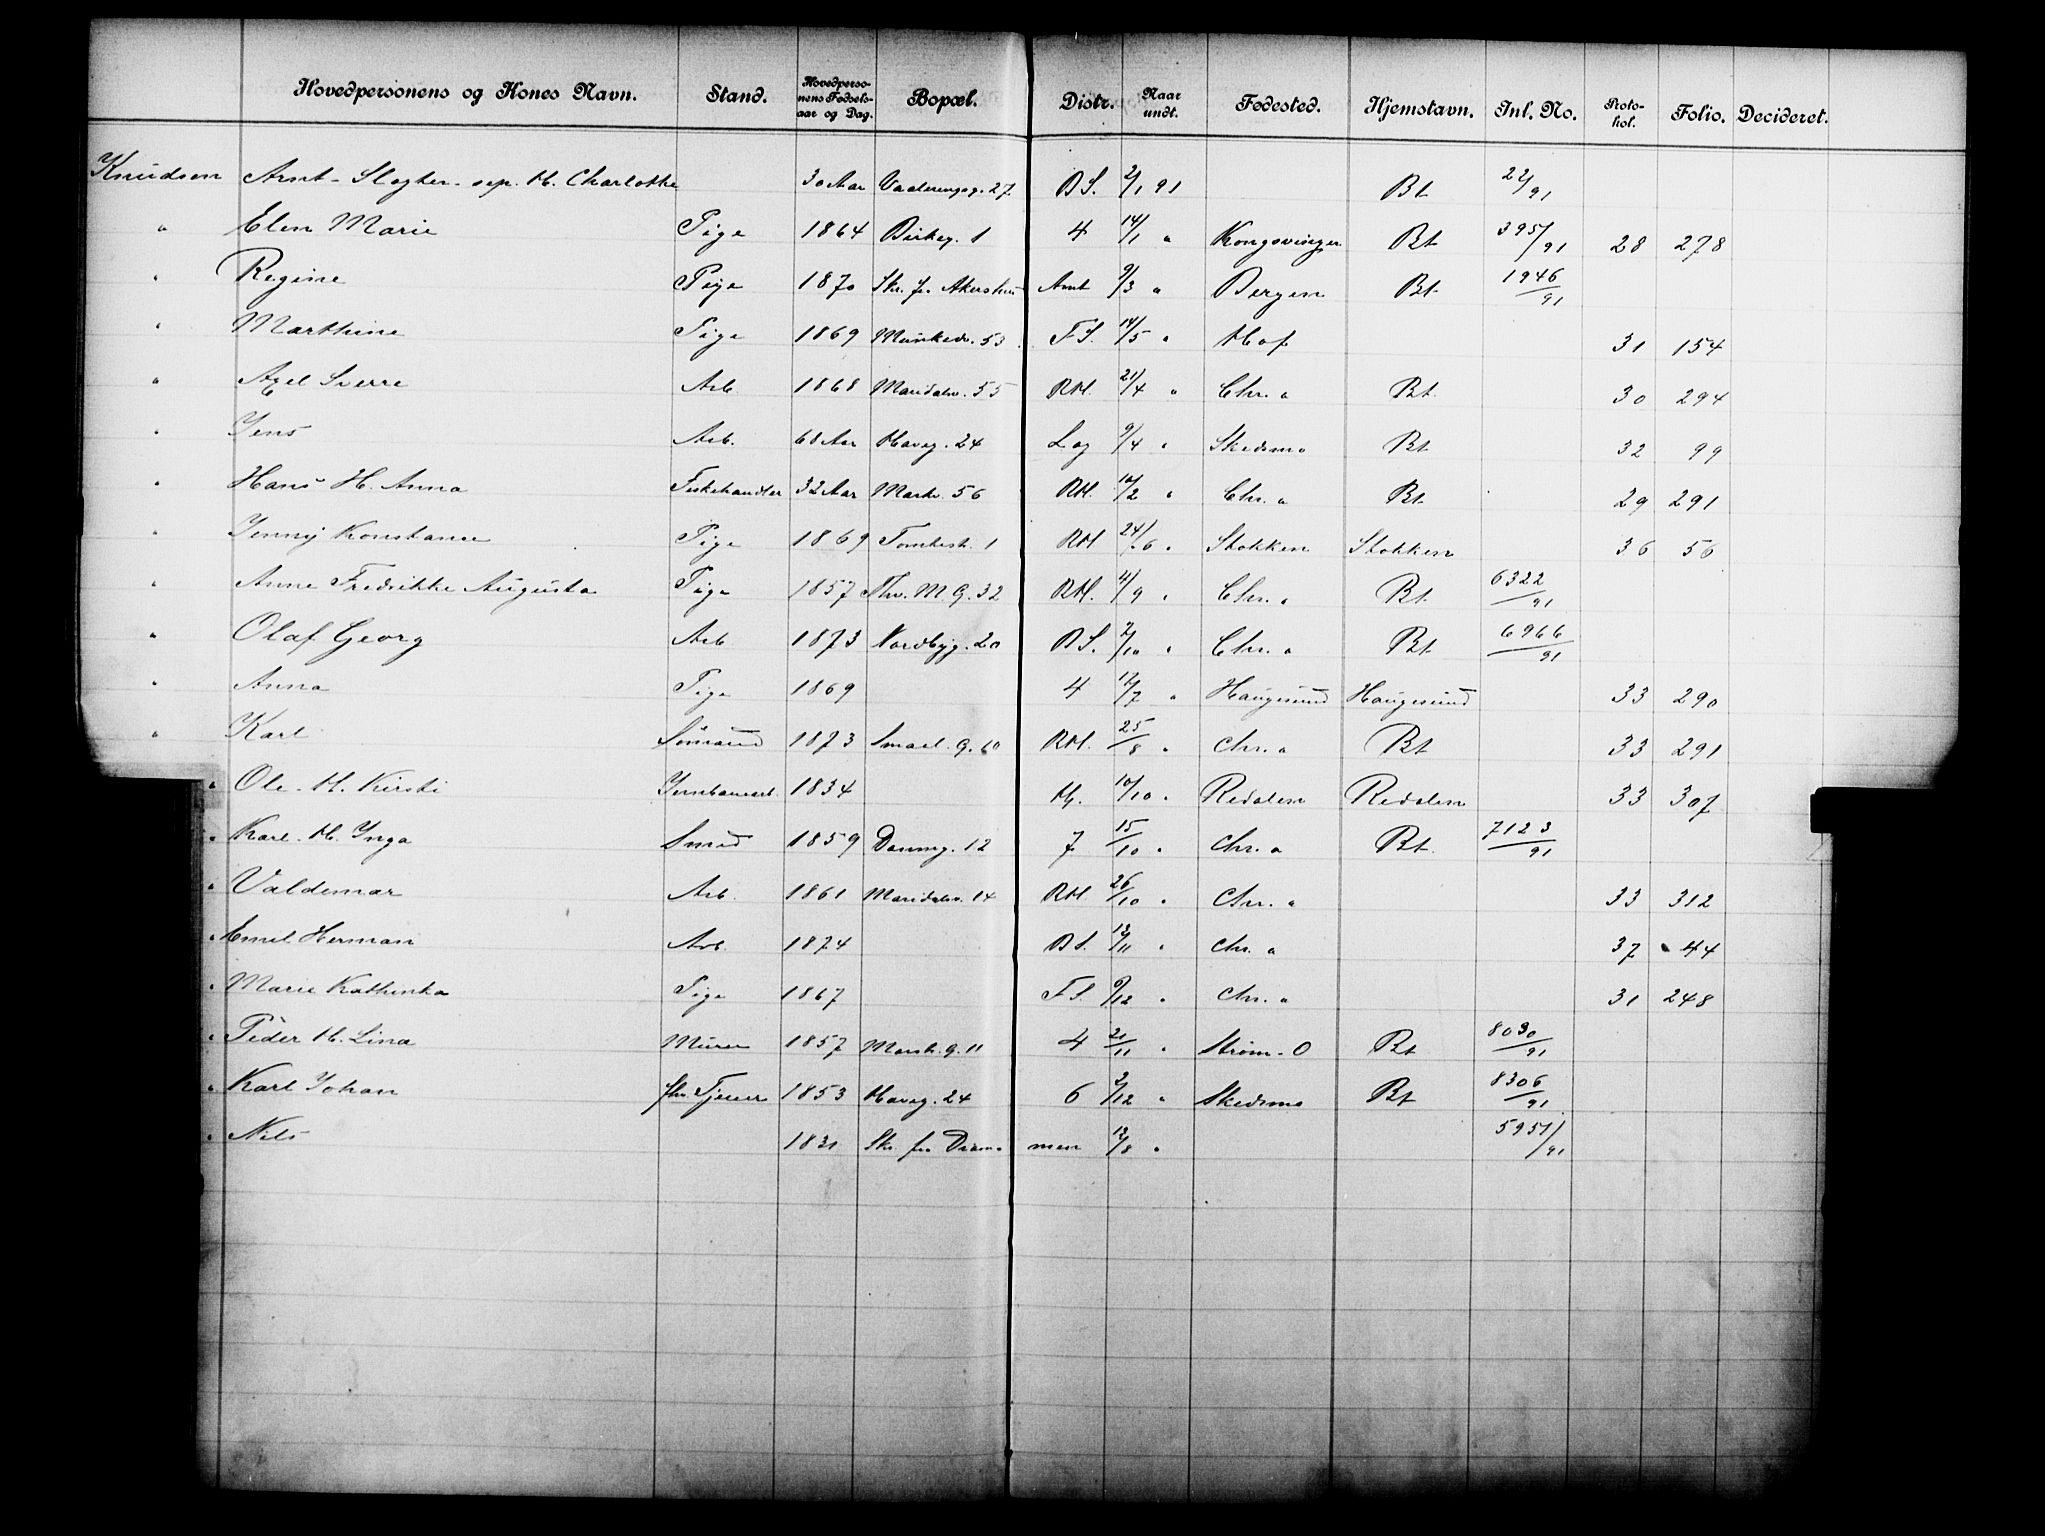 Hovedpersonens og Kones Navn. Stand. Hovedperso-nens Fødsels-aar og Dag. Bopæl. Distr. Naar undt. Fødested. Hjemstavn. Inl. No. Proto-kol. Folio. Decideret.
Knudsen Arnt - Slagter - sep. H. Charlotte 30 Aar Vaalerengsg. 27. BS. 2/1 91 Bt 22/91
" Elen Marie Pige 1864 Birkeg. 1 4 14/1 " Kongsvinger Bt 3951/91 28 278
" Regine Pige 1870 Skr. fr. Akershus Amt 9/3 " Bergen Bt 1946/91
" Marthine Pige 1869 Munkedv. 53 FS. 14/5 " Hof 31 154
" Axel Sverre Arb. 1868 Maridalsv. 55 RH. 21/4 " Chr. a Bt. 30 294
" Jens Arb. 68 Aar Haveg. 24 Log 9/4 " Skedsmo Bt 32 99
" Hans H. Anna Fiskehandler 32 Aar Markv. 56 RH. 10/2 " Chr. a Bt 29 291
" Jenny Konstance Pige 1869 Tomtest. 1 RH 24/6 " Stokken Stokken 36 56
" Anne Fredrikke Augusta Pige 1857 Thv. M. G. 32 RH. 4/9 " Chr. a Bt. 6322/91
" Olaf Georg Arb. 1873 Nordbyg. 20 BS. 2/10 " Chr. a Bt 6966/91
" Anna Pige 1869 4 12/7 " Haugesund Haugesund 33 290
" Karl Sømand 1873 Smael. G. 60 RH. 25/8 " Chr. a Bt 33 291
" Ole - H. Kirsti Jernbanearb. 1834 10/10 " Redalen Redalen 33 307
" Karl - H. Inga Smed 1859 Danmg. 12 7 15/10 " Chr. a Bt. 7123/91
" Valdemar Arb. 1861 Maridalsv. 14 RH. 26/10 " Chr. a 33 312
" Emil Herman Arb. 1874 BS. 12/11 " Chr. a 37 44
" Marie Kathinka Pige 1867 FS. 9/12 " Chr. a 31 248
" Peder H. Lina Murer 1857 Marsk. G. 11 4 21/11 " Strøm - O Bt 8030/91
" Karl Johan fhv. Tjener 1853 Haveg. 24 6 2/12 " Skedsmo Bt 8306/91
" Nils 1831 Skr. fra Dram-men 12/8 " 5951/91